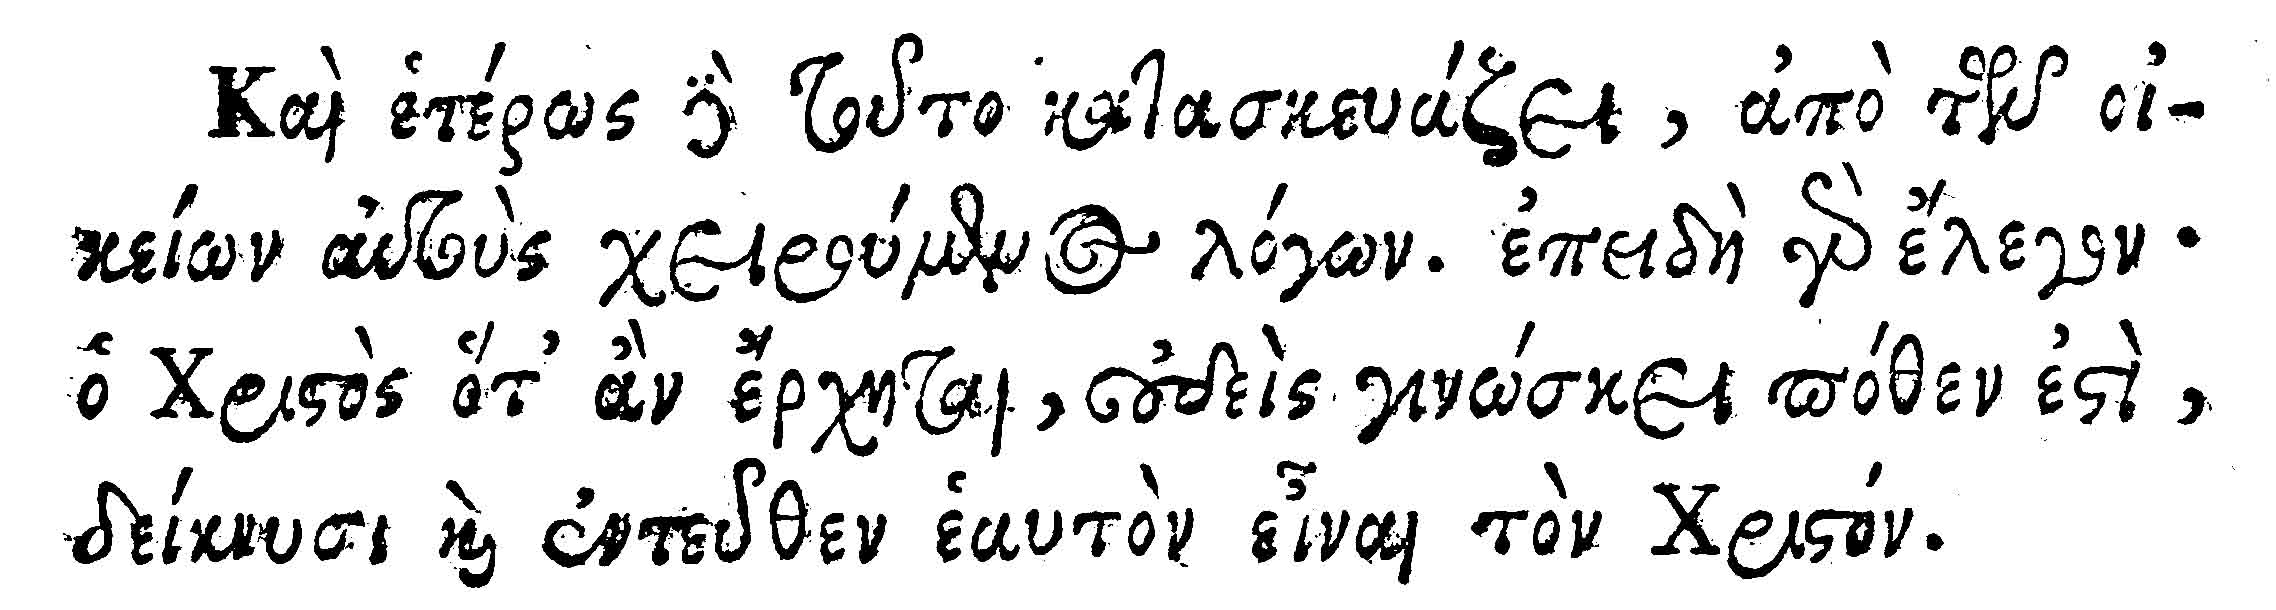 Καὶ ἑτέρως δὲ τοῦτο κατασκευάζει, ἀπὸ τῶν οἰ-
κείων αὐτοὺς χειρούμενος λόγων. ἐπειδὴ γὰρ ἔλεγον·
ὁ Χριστὸς ὅτ' ἂν ἔρχηται, οὐδεὶς γινώσκει πόθεν ἐστὶ,
δείκνυσι καὶ ἐντεῦθεν ἑαυτὸν εἶναι τὸν Χριστόν.